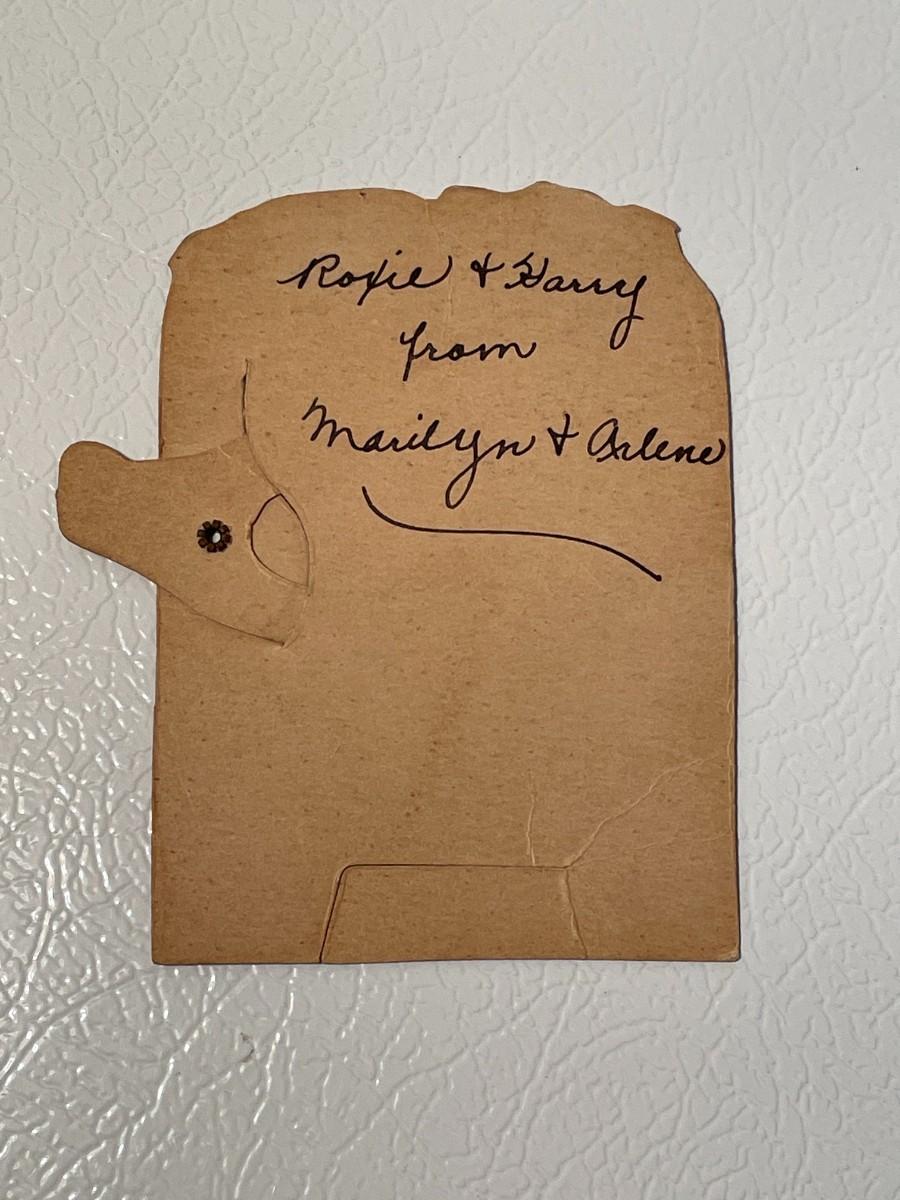 Roxie & Garry
from
Marilyn & Arlene